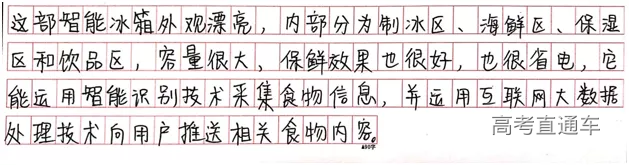 这部智能冰箱外观漂亮，内部分为制冰区、海鲜区、保湿
区和饮品区，容量很大，保鲜效果也很好，也很省电，它
能运用智能识别技术采集食物信息，并运用互联网大数据
处理技术向用户推送相关食物内容。
高考直通车
400字